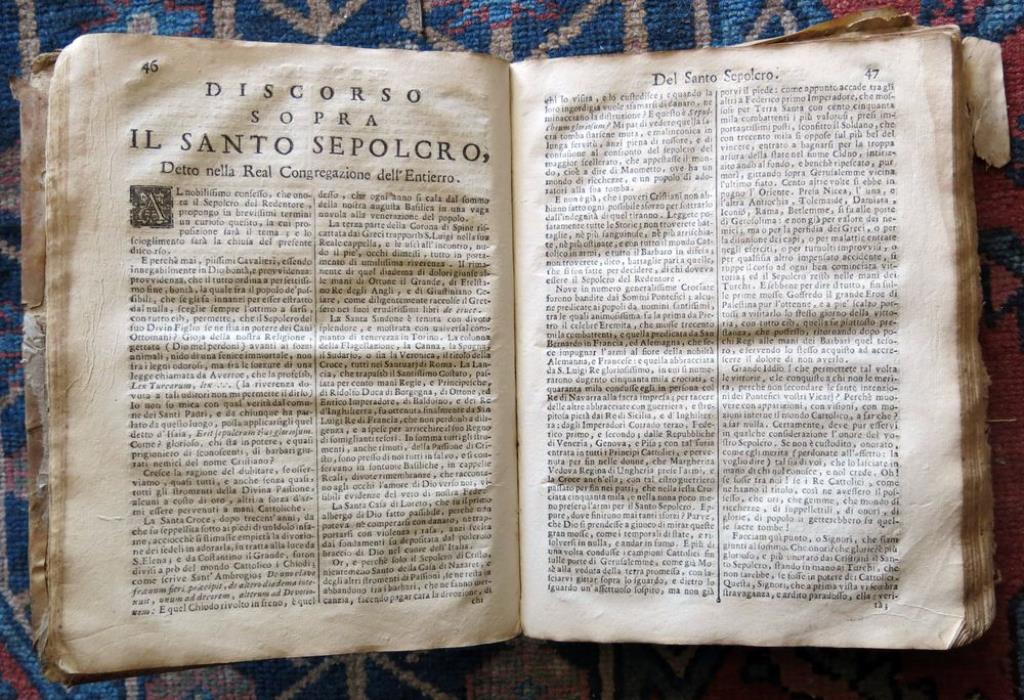 46
DISCORSO
SOPRA
IL SANTO SEPOLCRO,
Detto nella Real Congregazione dell'Entierro.
AL nobilissimo consesso, che ono-
ra il Sepolcro del Redentore,
propongo in brevissimi termini
un curioso quesito, la cui pro-
posizione sarà il tema; e lo
scioglimento sarà la chiusa del presente
discorso.
E perchè mai, piissimi Cavalieri, essendo
innegabilmente in Dio bontà, e provvidenza;
provvidenza, che il tutto ordina a perfettissi-
mo fine, bontà, la quale fra il popolo de' pos-
sibili, che segli fa innanzi per esser estratto
dal nulla, sceglie sempre l'ottimo a farsi,
con tutto ciò, permette, che il Sepolcro del
suo Divin Figlio se ne stia in potere dei Cani
Ottomani? Gioja della nostra Religione,
gettata (Dio mel perdoni) avanti a sozzi
animali, nido di una fenice immortale, non
fra i legni odorosi, ma fra le sozzure di una
legge chiamata da Averroe, che la professò,
Lex Turcarum, lex ... (la riverenza do-
vuta a tali uditori non mi permette il dirlo)
Io non so mica con qual verità dal comu-
ne dei Santi Padri, e da chiunque ha par-
lato da quello luogo, possa applicarsigli quel
detto d'Isaia, Erit sepulcrum ejus gloriosum.
Come? glorioso, chi sta in potere, e quasi
prigioniero di sconoscenti, di barbari giu-
rati nemici del nome Cristiano?
Cresce la ragione del dubitare, se osser-
viamo, quasi tutti, e anche senza quasi,
tutti gli stromenti della Divina Passione,
alcuni a costo di oro, altri a forza d'ar-
mi essere pervenuti a mani Cattoliche.
La Santa Croce, dopo trecent'anni, da
che fu seppellita sotto ai piedi d'un idolo infa-
me, acciocchè si stimasse empietà la divozio-
ne dei fedeli in adorarla, fu tratta alla luce da
S. Elena; e da Costantino il Grande, furon
divisi a prò del mondo Cattolico i Chiodi,
come scrive Sant'Ambrogio; De uno clave
frenum fieri, præcepit, de altero diadema inte-
xuit, unum ad decorem, alterum ad Devotio-
nem. E quel Chiodo rivolto in freno, è quel
desso, che ogni anno si cala dal sommo
di nostra augusta Basilica in una vaga
nuvola alla venerazione del popolo.
La terza parte della Corona di Spine ris-
cattata dai Greci trapportò S. Luigi nella sua
Reale cappella, e le uscì all'incontro, nu-
do il piè, occhi dimessi, tutto in porta-
mento di umilissima riverenza. Il rima-
nente di quel diadema di dolori giunse al-
le mani di Ottone il Grande, di Etelsta-
no Re degli Angli, e di Giustiniano Ce-
sare, come diligentemente raccolse il Gret-
sero nei suoi eruditissimi libri de cruce.
La Santa Sindone è tenuta con divoto
splendore, e mostrata con universal compi-
mento di tenerezza in Torino. La colonna
della Flagellazione, la Canna, la Sponga,
il Sudario, o sia la Veronica, il titolo della
Croce, tutti nei Santuarj di Roma. La Lan-
cia, che trapassò il Santissimo Costato, pas-
sata per cento mani Regie, e Principesche,
di Ridolfo Duca di Borgogna, di Ottone, di
Enrico Imperadore, di Balduino, e dei Re
d'Inghilterra, fu ottenuta finalmente da San
Luigi Re di Francia, che non perdonò a dili-
genza, e a spese per arricchire il suo Regno
di somiglianti tesori. In somma tutti gli stro-
menti, anche minuti, della Passione di Cri-
sto, sono presso di noi tutti in salvo, e si con-
servano in sontuose Basiliche, in cappelle
Reali, divote rimembranze, che raccorda-
no agli occhi l'amore di Dio verso noi, vi-
sibili evidenze del vero di nostra Fede.
La Santa Casa di Loreto, che fu il primo
albergo di Dio fatto passibile, perchè non
poteva nè comperarsi con danaro, nè trap-
portarsi con violenza; rasa, anzi uscita
dai fondamenti fu depositata dal poderoso
braccio di Dio nel cuore dell'Italia.
Or, e perchè solo il Sepolcro di Cristo,
ugualmente Santo della Casa di Nazaret, e
degli altri stromenti di Passioni, se ne resta in
abbandono tra i barbari, che ne fanno mer-
canzia, facendo pagar cara la devozione, di
chi
Del Santo Sepolcro.
47
chi lo visita, e lo custodisce; e quando la
loro ingordigia vuole sfamarsi di danaro, ne
minacciano la distruzione? E questo è Sepul-
chrum gloriosum? Mi par di vedere quella sa-
cra tomba starsene muta, e malinconica in
lunga servitù, anzi piena di rossore, e di
confusione al confronto del sepolcro del
maggior scellerato, che appestasse il mon-
do, cioè a dire di Maometto, ove ha un
mondo di ricchezze, e un popolo di ado-
ratori alla sua tomba.
E non è già, che i poveri Cristiani non ab-
biano fatto ogni possibile sforzo per sottrarlo
dall'indegnità di quel tiranno. Leggete po-
satamente tutte le Storie; non troverete bat-
taglie, nè più sanguinose, nè più arrischia-
te, nè più ostinate, e con tutto il mondo Cat-
tolico in armi, e tutto il Barbaro in difesa
non troverete, dico, battaglie pari a quelle,
che si son fatte per decidere, di chi doveva
essere il Sepolcro del Redentore.
Nove in numero generalissime Crociate
furono bandite dai Sommi Pontefici; alcu-
ne predicate ai popoli da, uomini santissimi,
tra le quali animosissima fu la prima da Pie-
tro il celebre Eremita, che mosse trecento
mila combattenti, e quella predicata da San
Bernardo in Francia, ed Alemagna, che fe-
ce impugnar l'armi al fiore della nobiltà
Alemanna, e Francese: e quella bandita
da S. Luigi Re gloriosissimo, in cui si nume-
rarono dugento cinquanta mila crociati, e
quaranta mila condusse egli in persona col
Re di Navarra alla sacra impresa; per tacere
delle altre abbracciate con guerriera, e stre-
pitosa pietà dai Re di Sicilia, e d'Inghilter-
ra; dagli Imperadori Corrado terzo, Fede-
rico primo, e secondo; dalle Repubbliche
di Venezia, Genova, e Pisa; con tal furia
entrata in tutti i Principi Cattolici, e perve-
nuta per fin nelle donne, che Margherita
Vedova Regina di Ungheria prese l'armi, e
la Croce anch'ella; con tal estro guerriero
passato per fin nei patti, che nella sesta Cro-
ciata cinquanta mila, e nella nona poco me-
no presero l'armi per il Santo Sepolcro. Ep-
pure, dove finirono mai tanti sforzi? Parve,
che Dio si prendesse a giuoco di mirar queste
gran mosse, come i temporali di state, e ri-
solversi in nulla, e andar in fumo. E più di
una volta condusse i campioni Cattolici fin
sulle porte di Gerusalemme, come già Mo-
sè alla veduta della terra promessa, con la-
sciarvi gittar sopra lo sguardo, e dietro lo
sguardo un'affettuoso sospiro, ma non già
porvi il piede: come appunto accade tra gli
altri a Federico primo Imperadore, che mos-
so per Terra Santa con cento cinquanta
mila combattenti i più valorosi, presi im-
portantissimi posti, sconfitto il Soldano, che
con trecento mila si oppose sul più bel del
vincere, entrato a bagnarsi per la troppa
arsura della state nel fiume Cidno, intiriz-
zito andò al fondo, e benchè ripescato, pur
morì, gittando sopra Gerusalemme vicina
l'ultimo fiato. Cento altre volte si ebbe in
pugno l'Oriente. Presa Nicea, l'una, e
l'altra Antiochia, Tolemaide, Damiata,
Iconio, Rama, Betlemme, si fu alle porte
di Gerosolima: e non già per valore dei ne-
mici; ma o per la perfidia dei Greci, o per
la disunione dei capi, o per malattie entrate
negli eserciti, o per tumulti improvvisi, o
per qualsisia altro impensato accidente, si
ruppe il corso ad ogni ben cominciata vit-
toria; ed il Sepolcro restò nelle mani dei
Turchi. E sebbene per dire il tutto, fin sul-
le prime mosse Goffredo il grande Eroe di
Palestina pur l'ottenne, e a piè scalzo por-
tossi a visitarlo lo stesso giorno della vitto-
ria, con tutto ciò, quella fu piuttosto pre-
stanza, che possesso, ritornando dopo po-
chi Regi alle mani dei Barbari quel teso-
ro, e servendo lo stesso acquisto ad accre-
scere il dolore di non averlo.
Grande Iddio! che permettete tal volta
le vittorie, e le conquiste a chi non le meri-
ta, perchè non secondare le sante intenzio-
ni dei Pontefici vostri Vicarj? Perchè muo-
vere con apparizioni, con visioni, con mo-
zioni interne il mondo Cattolico, a far che?
a far nulla. Certamente, deve pur esservi
in qualche considerazione l'onore del vo-
stro Sepolcro. Se non è custodito, onorato,
come egli merita (perdonate all'affetto: la
voglio dire) tal sia di voi, che lo lasciate in
mano di chi nol conosce, e nol crede. Oh!
se fosse tra noi! se i Re Cattolici, come
ne hanno il titolo, così ne avessero il pos-
sesso, che ori, che gemme, che mondo di
ricchezze, di suppellettili, di onori, di
glorie, di popolo si getterebbero su quel-
le sacre tombe!
Facciam qui punto, o Signori, che siam
giunti al sommo. Che onore? che glorie? chè
più glorioso, e più onorato dai Cristiani il San-
to Sepolcro, stando in mano ai Turchi, che
non sarebbe, se fosse in potere dei Cattolici.
Questa, Signori, che a prima vista vi sembra
stravaganza, e ardito paradosso, ella è veri-
tà;